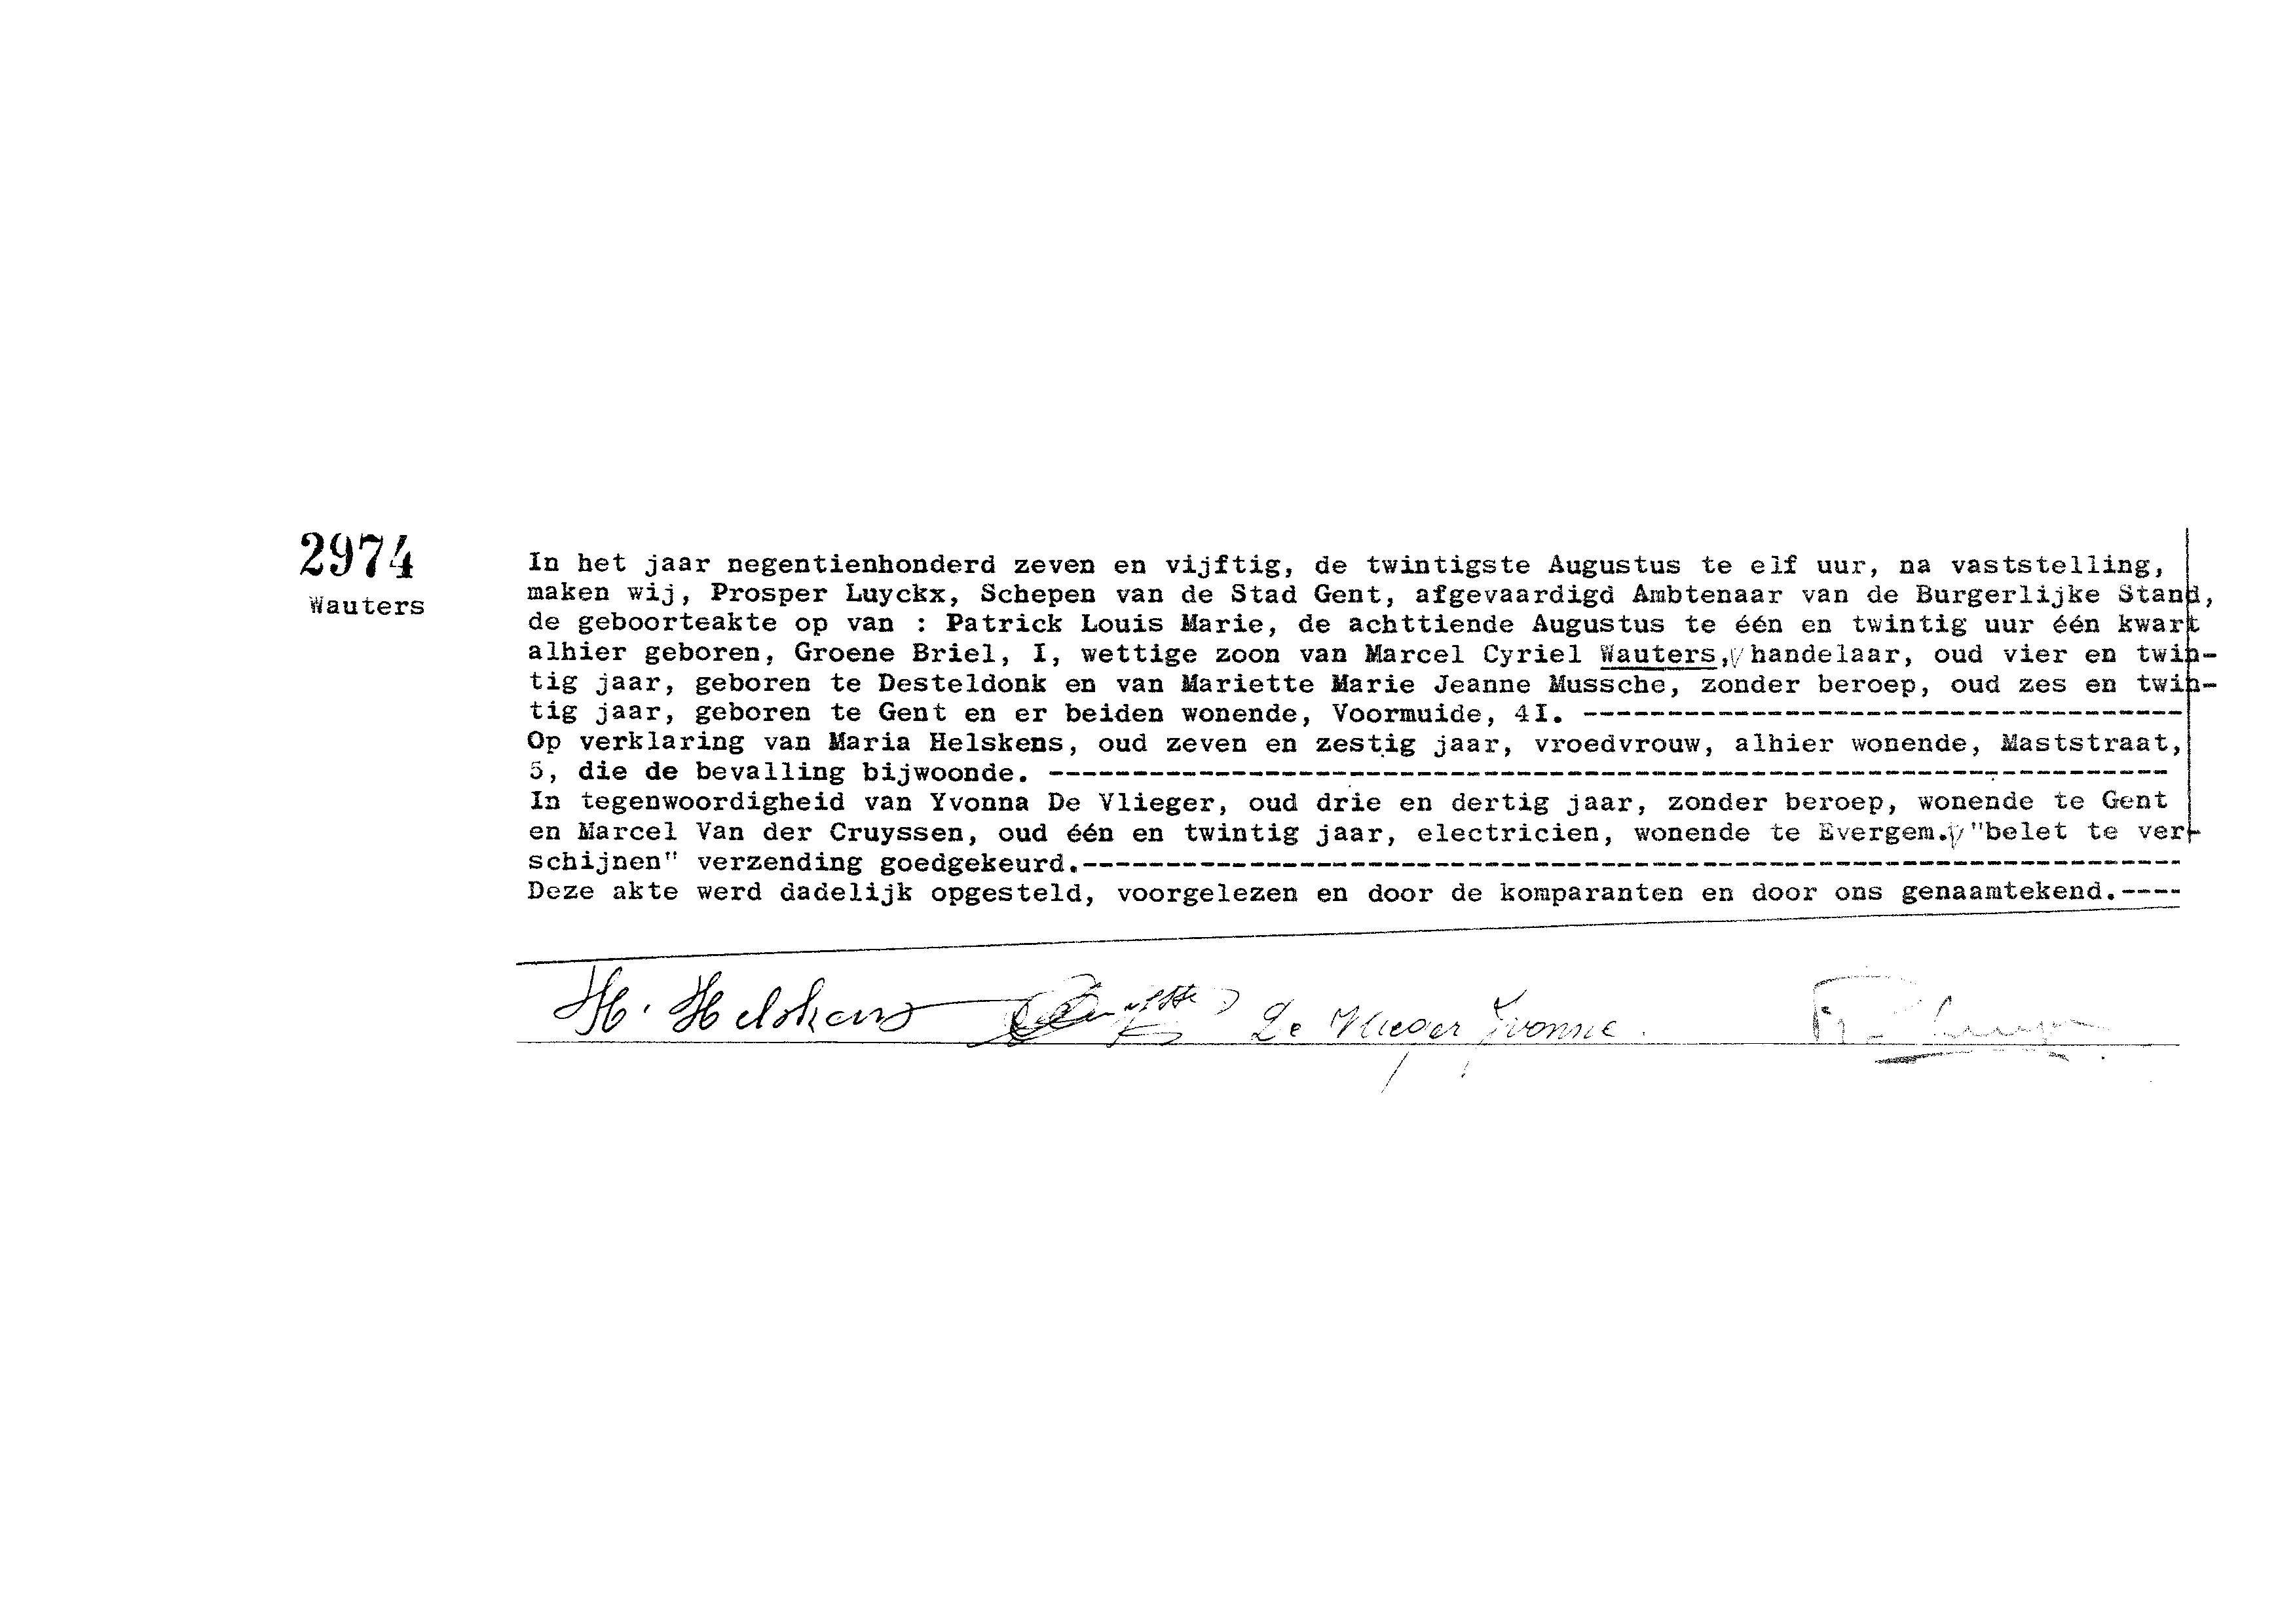 2974
Wauters
In het jaar negentienhonderd zeven en vijftig, de twintigste Augustus te elf uur, na vaststelling,
maken wij, Prosper Luyckx, Schepen van de Stad Gent, afgevaardigd Ambtenaar van de Burgerlijke Stand,
de geboorteakte op van : Patrick Louis Marie, de achttiende Augustus te één en twintig uur één kwart
alhier geboren, Groene Briel, I, wettige zoon van Marcel Cyriel Wauters, handelaar, oud vier en twin-
tig jaar, geboren te Desteldonk en van Mariette Marie Jeanne Mussche, zonder beroep, oud zes en twin-
tig jaar, geboren te Gent en er beiden wonende, Voormuide, 4I. ------------------------------------
Op verklaring van Maria Helskens, oud zeven en zestig jaar, vroedvrouw, alhier wonende, Maststraat,
5, die de bevalling bijwoonde. -------------------------------------------------------------------
In tegenwoordigheid van Yvonna De Vlieger, oud drie en dertig jaar, zonder beroep, wonende te Gent
en Marcel Van der Cruyssen, oud één en twintig jaar, electricien, wonende te Evergem. "belet te ver-
schijnen" verzending goedgekeurd.------------------------------------------------------------------
Deze akte werd dadelijk opgesteld, voorgelezen en door de komparanten en door ons genaamtekend.----
Helskens De Vlieger Yvonne.